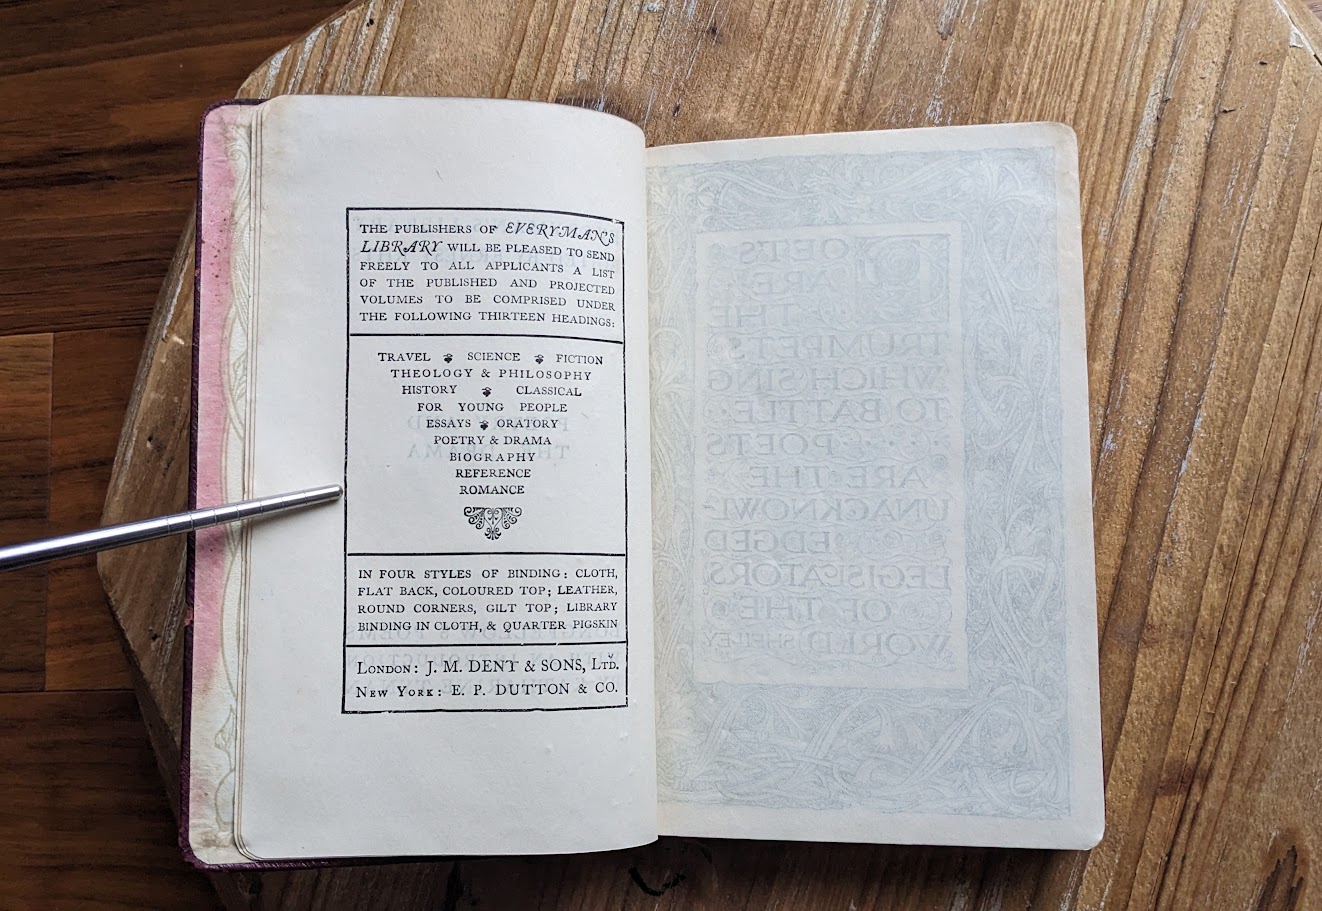 THE PUBLISHERS OF EVERYMAN'S
LIBRARY WILL BE PLEASED TO SEND
FREELY TO ALL APPLICANTS A LIST
OF THE PUBLISHED AND PROJECTED
VOLUMES TO BE COMPRISED UNDER
THE FOLLOWING THIRTEEN HEADINGS:
TRAVEL SCIENCE FICTION
THEOLOGY & PHILOSOPHY
HISTORY CLASSICAL
FOR YOUNG PEOPLE
ESSAYS ORATORY
POETRY & DRAMA
BIOGRAPHY
REFERENCE
ROMANCE
IN FOUR STYLES OF BINDING: CLOTH,
FLAT BACK, COLOURED TOP; LEATHER,
ROUND CORNERS, GILT TOP; LIBRARY
BINDING IN CLOTH, & QUARTER PIGSKIN
LONDON: J. M. DENT & SONS, LTD.
NEW YORK: E. P. DUTTON & CO.
POETS
ARE
THE
TRUMPETS
WHICH SING
TO BATTLE
POETS
ARE THE
UNACKNOWL-
EDGED
LEGISLATORS
OF THE
WORLD SHELLEY